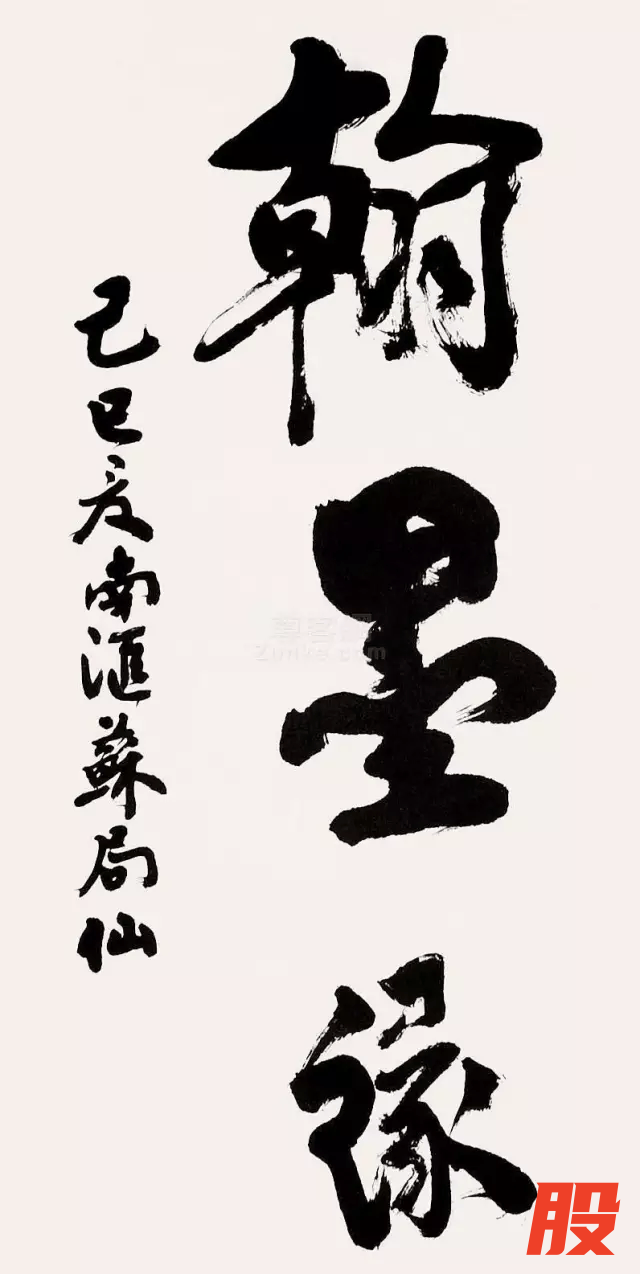 翰墨缘
己巳夏南滙蘇局仙
尊客網
Zunke.com
股